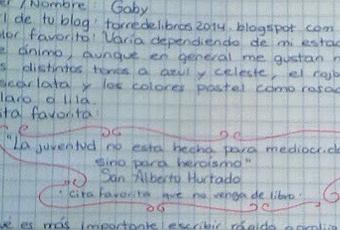 Nombre: Gaby
l de tu blog: torredelibros2014.blogspot.com
lor favorita: Varía dependiendo de mi estad
e ánimo, aunque en general me gustan m
s distintos tonos a azul y celeste, el rojo
scarlata y los colores pastel como rosad
laro o lila.
ita favorita:
"La juventud no esta hecha para mediocrida
sino para heroismo"
San Alberto Hurtado
· cita favorita que no venga de libro ·
ué es más importante escribir rápido